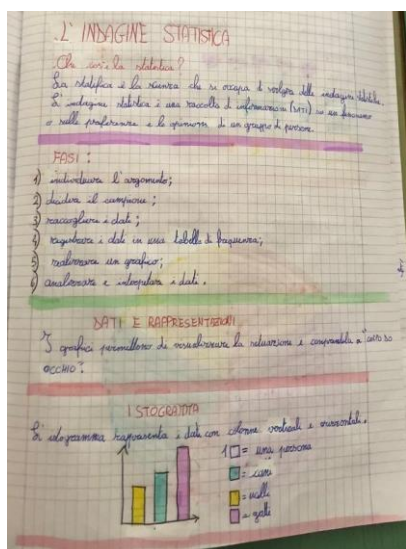 L'INDAGINE STATISTICA
Che cos'è la statistica?
La statistica è la scienza che si occupa di svolgere delle indagini statistiche.
L'indagine statistica è una raccolta di informazioni (DATI) su un fenomeno
o sulle preferenze e le opinioni di un gruppo di persone.
FASI:
1) individuare l'argomento;
2) chiedere il campione;
3) raccogliere i dati;
4) registrare i dati in una tabella di frequenza;
5) realizzare un grafico;
6) analizzare e interpretare i dati.
DATI E RAPPRESENTAZIONI
I grafici permettono di visualizzare la situazione e comprenderla a "COLPO
OCCHIO".
ISTOGRAMMA
L'istogramma rappresenta i dati con colonne verticali e orizzontali.
1 = una persona
= cani
= gatti